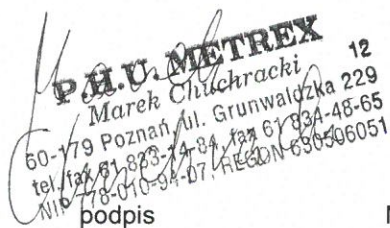 P.H.U. METREX
12
Marek Chuchracki
60-179 Poznań, ul. Grunwaldzka 229
tel./fax 61 823-14-84, fax 61 834-48-65
NIP 778-010-94-07, REGON 630506051
podpis